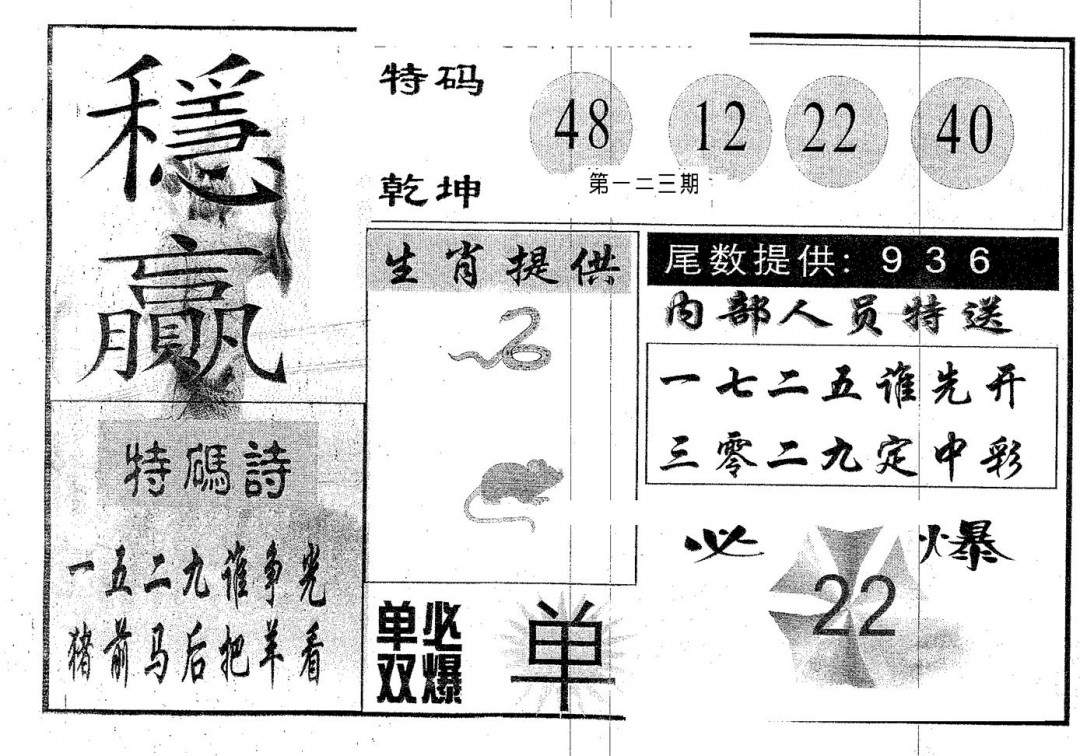 穩
贏
特码
乾坤
48 12 22 40
第一二三期
生肖提供
尾数提供: 9 3 6
内部人员特送
一七二五谁先开
三零二九定中彩
特碼詩
一五二九谁争光
猪前马后把羊看
单必
双爆
单
必 爆
22